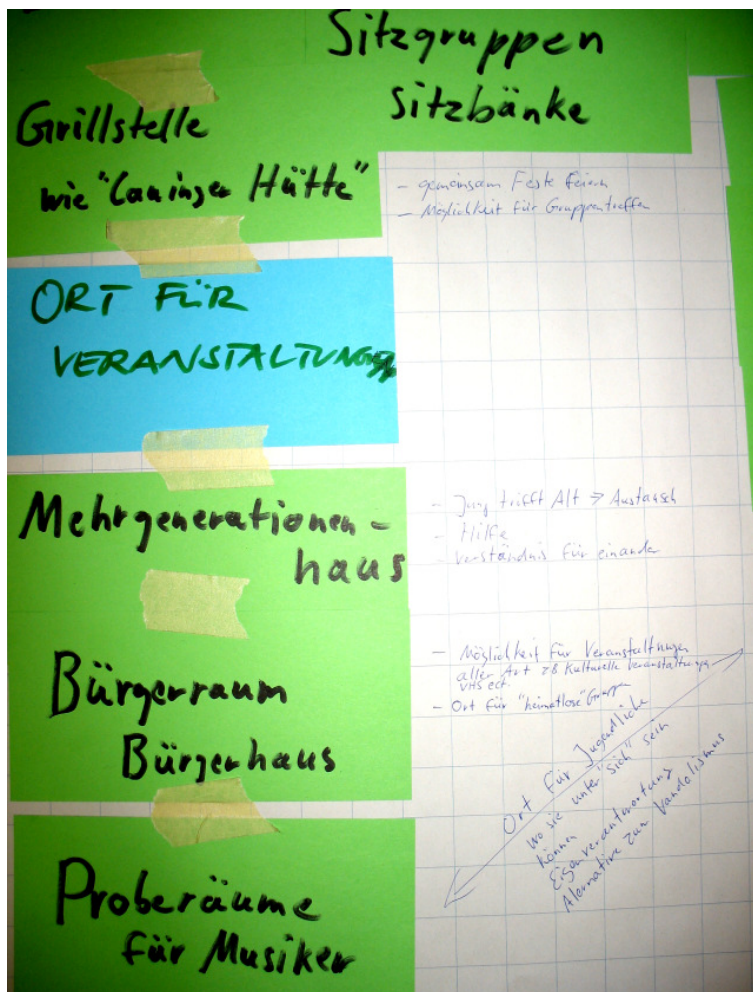 Sitzgruppen
Sitzbänke
Grillstelle
wie "Lauinger Hütte"
- gemeinsam Feste feiern
- Möglichkeit für Gruppentreffen
ORT FÜR
VERANSTALTUNGEN
Mehrgenerationen-
haus
- Jung trifft Alt → Austausch
- Hilfe
- Verständnis für einander
Bürgerraum
Bürgerhaus
- Möglichkeit für Veranstaltungen
aller Art zB kulturelle Veranstaltungen
VHS ect.
- Ort für "heimatlose" Gruppen
Ort für Jugendliche
wo sie unter "sich" sein
können
Eigenverantwortung
Alernative zum Vandalismus
Proberäume
für Musiker